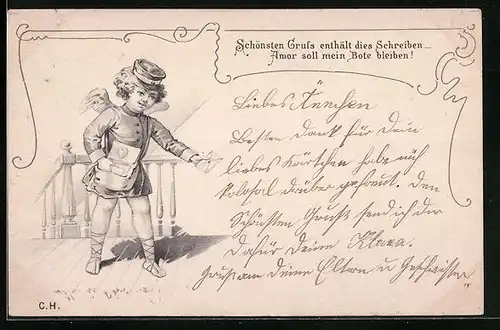 Schönsten Gruſs enthält dies Schreiben_
Amor soll mein Bote bleiben!
Liebes Ännchen
Besten Dank für Dein
liebes Kärtchen habe mich
kolosal drüber gefreut. Den
Schönsten Gruß send ich dir
dafür Deine Klara.
Grüße an Deine Eltern u Geschwister
C.H.